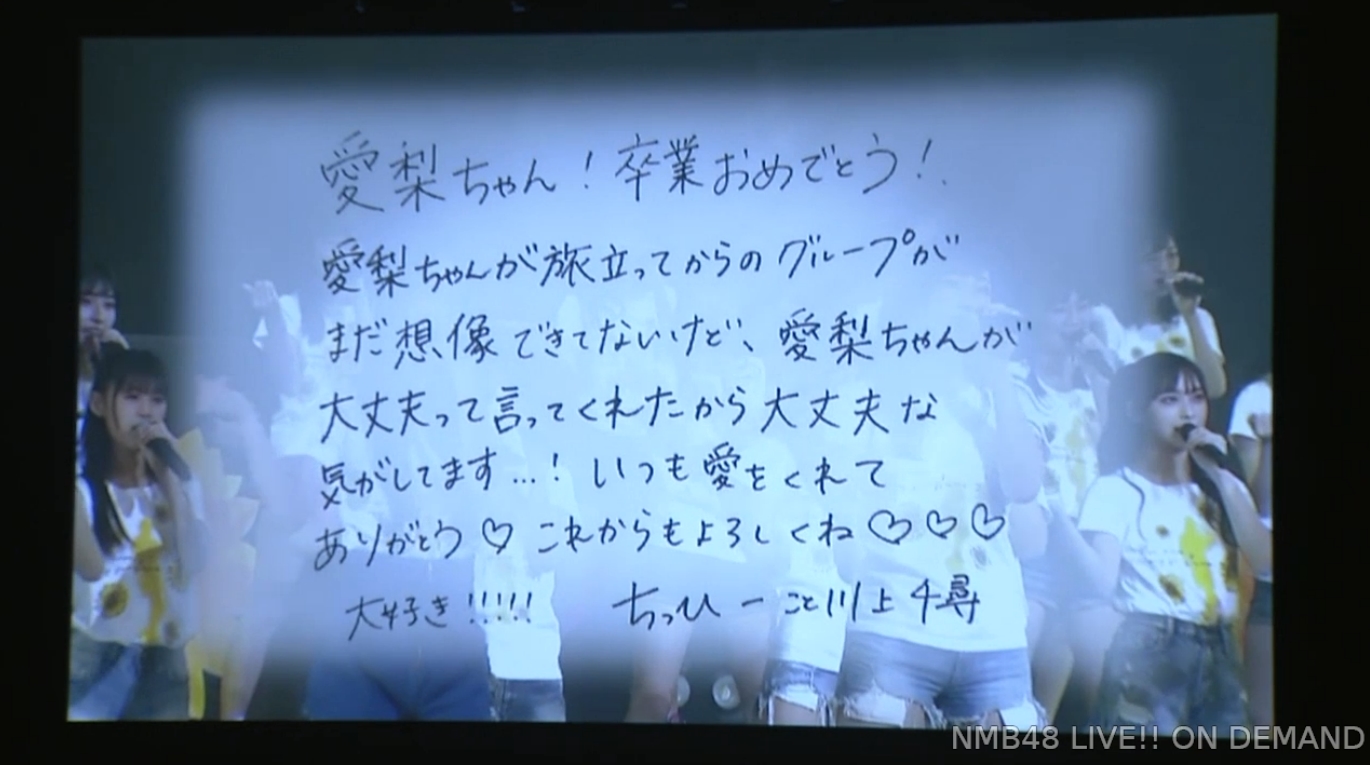 愛梨ちゃん！卒業おめでとう！
愛梨ちゃんが旅立ってからのグループが
まだ想像できてないけど、愛梨ちゃんが
大丈夫って言ってくれたから大丈夫な
気がしてます…！いつも愛をくれて
ありがとう♡これからもよろしくね♡♡♡
大好き!!!!!　ちっひーこと川上千尋
NMB48 LIVE!! ON DEMAND